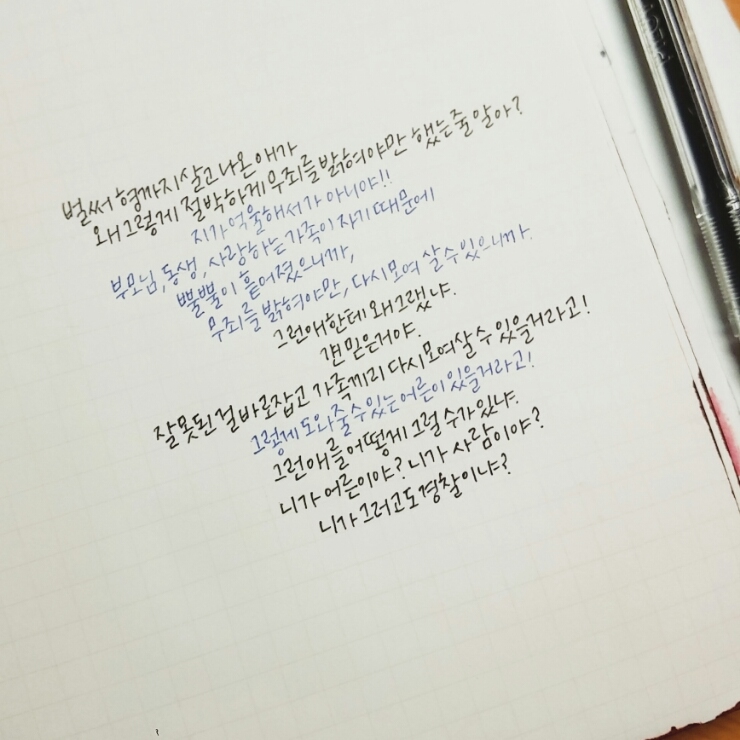 벌써 형까지 살고 나온 애가
왜 그렇게 절박하게 무죄를 밝혀야만 했는 줄 알아?
지가 억울해서가 아니야!!
부모님, 동생, 사랑하는 가족이 자기 때문에
뿔뿔이 흩어졌으니까,
무죄를 밝혀야만, 다시 모여 살 수 있으니까.
그런 애한테 왜 그랬냐.
걘 믿은거야.
잘못된 걸 바로 잡고 가족끼리 다시 모여 살 수 있을거라고!
그렇게 도와줄 수 있는 어른이 있을거라고!
그런 애를 어떻게 그럴 수가 있냐.
니가 어른이야? 니가 사람이야?
니가 그러고도 경찰이냐?